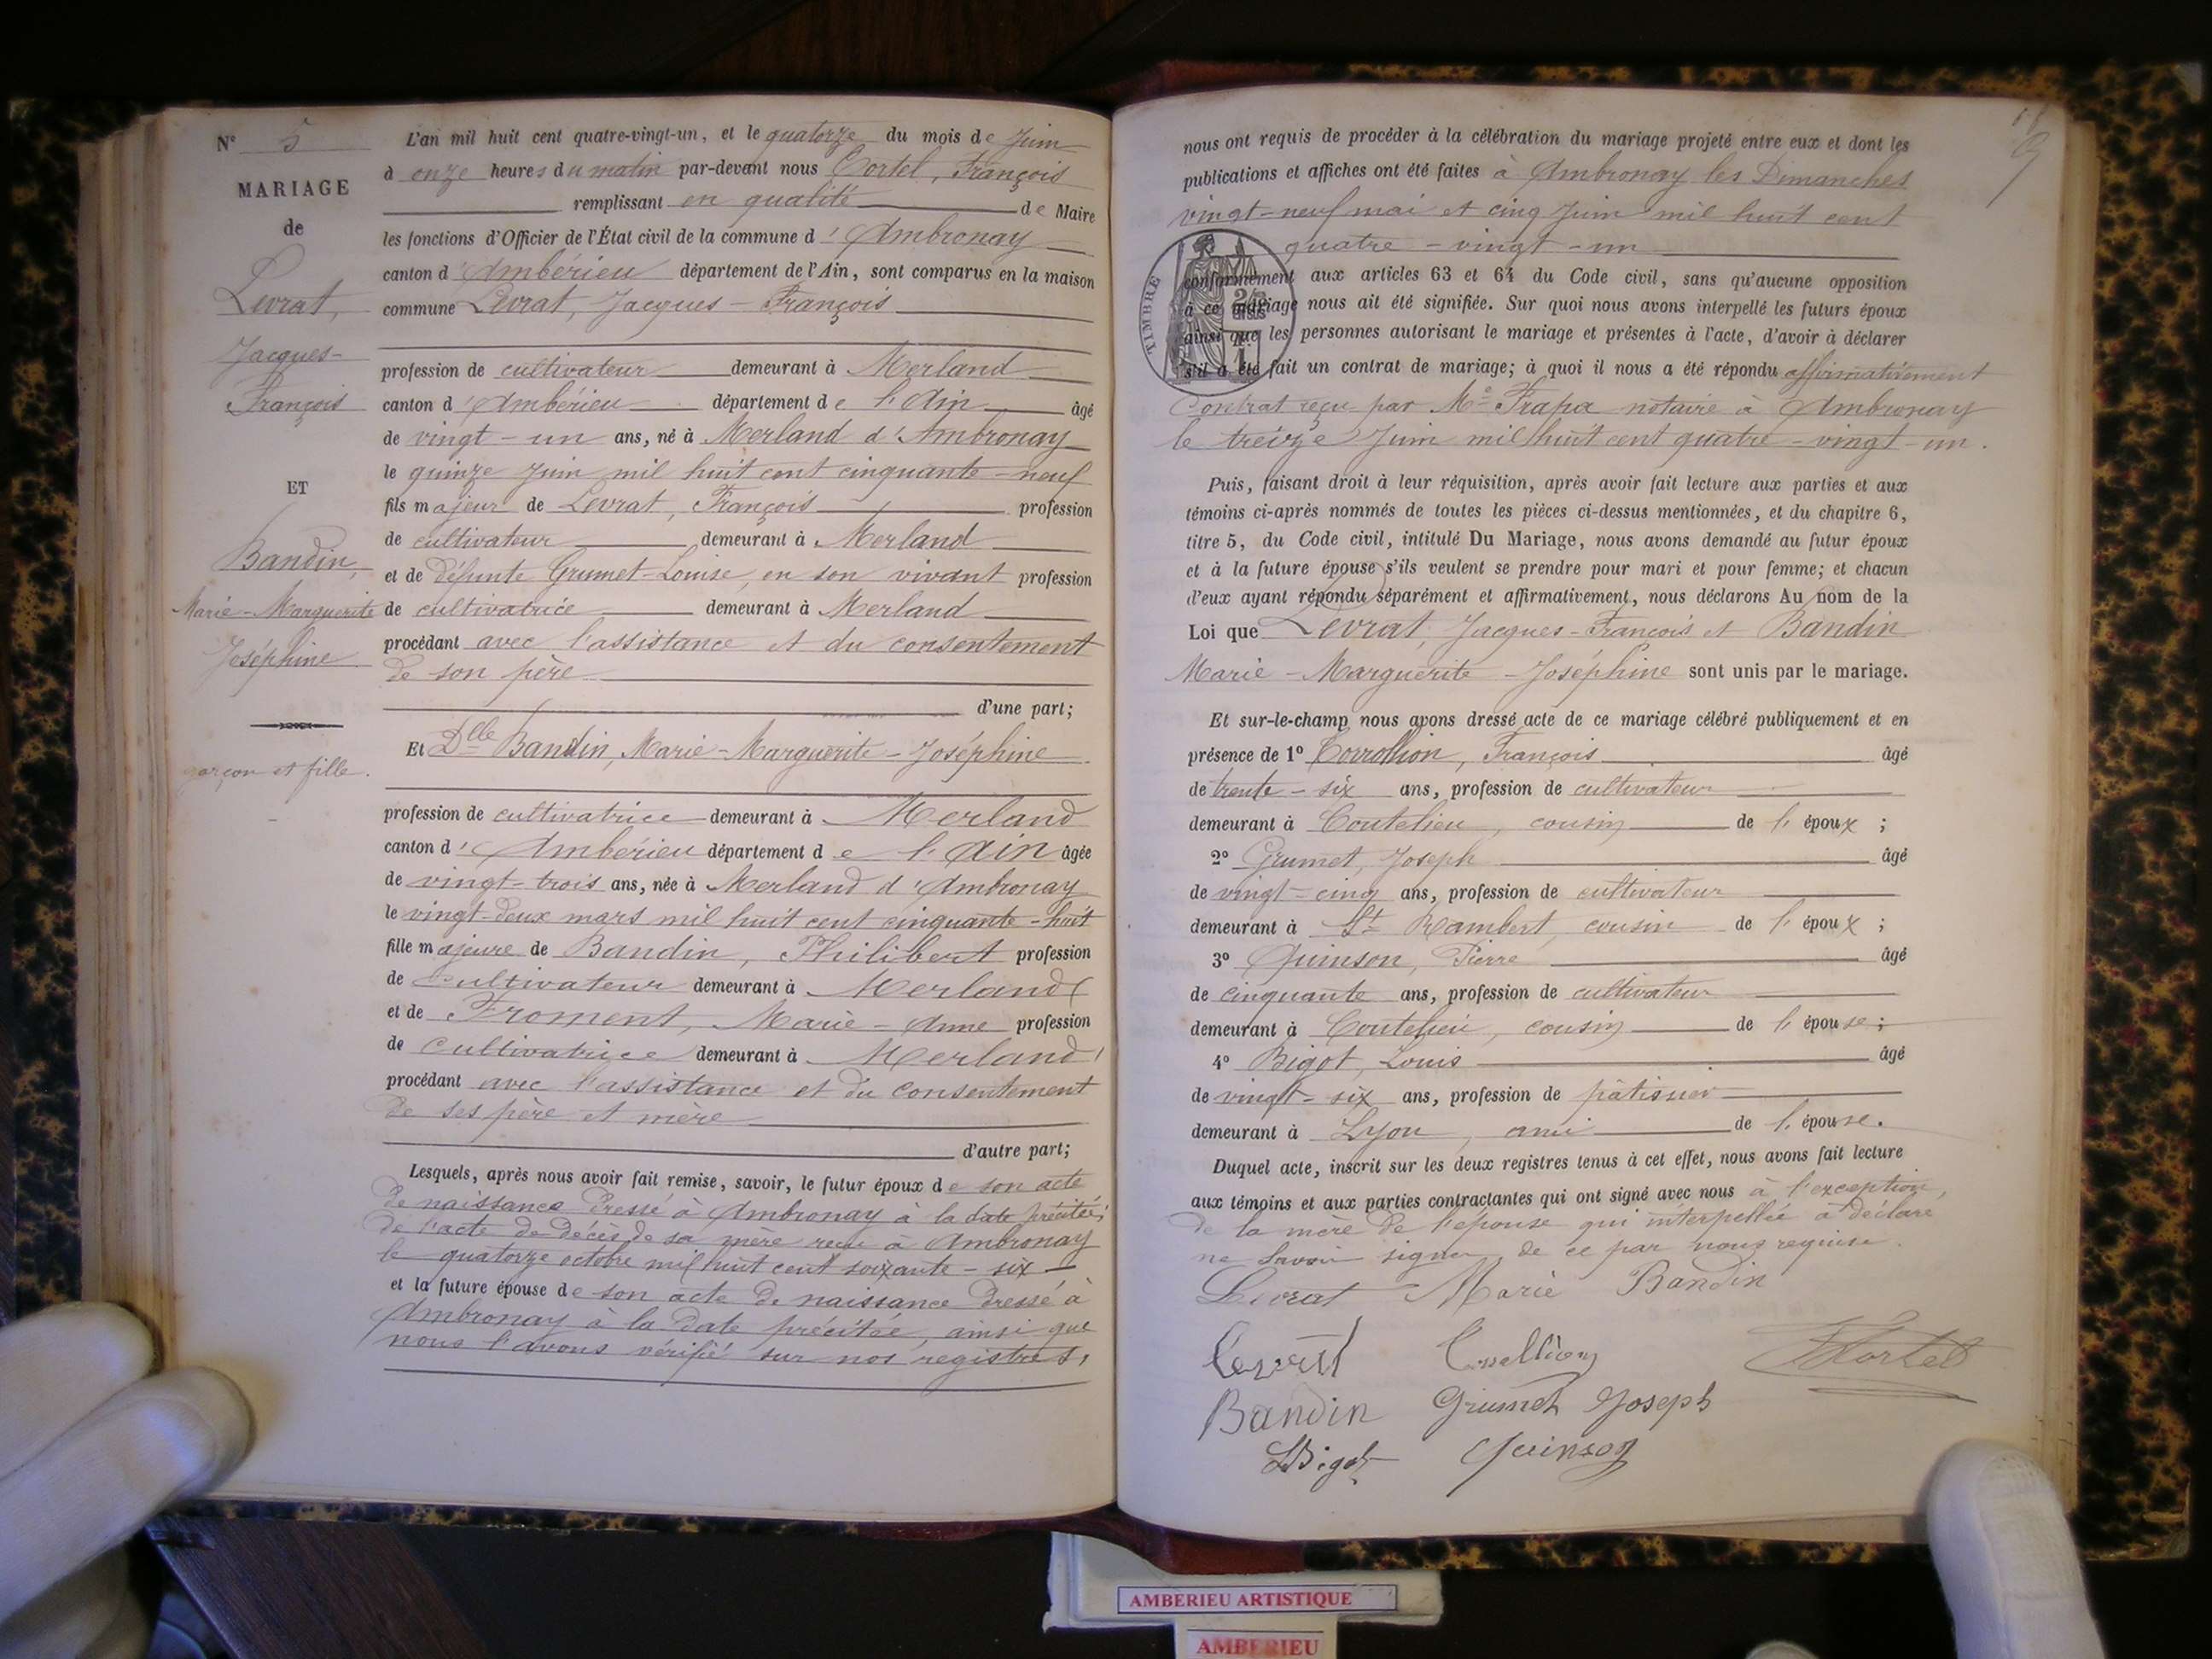 N° 5
MARIAGE
de
Levrat,
Jacques-
François
ET
Bandin,
Marie-Marguerite
Joséphine
garçon et fille.
L'an mil huit cent quatre-vingt-un, et le quatorze du mois de Juin
à onze heures du matin par-devant nous Cortel, François
remplissant en qualité de Maire
les fonctions d'Officier de l'État civil de la commune d'Ambronay
canton d'Ambérieu département de l'Ain, sont comparus en la maison
commune Levrat, Jacques-François
profession de cultivateur demeurant à Merland
canton d'Ambérieu département de l'Ain âgé
de vingt-un ans, né à Merland d'Ambronay
le quinze Juin mil huit cent cinquante-neuf
fils majeur de Levrat, François profession
de cultivateur demeurant à Merland
et de défunte Grumet-Louise, en son vivant profession
de cultivatrice demeurant à Merland
procédant avec l'assistance et du consentement
de son père
d'une part;
Et Dlle Bandin, Marie-Marguerite-Joséphine
profession de cultivatrice demeurant à Merland
canton d'Ambérieu département de l'Ain âgée
de vingt-trois ans, née à Merland d'Ambronay
le vingt-deux mars mil huit cent cinquante-huit
fille majeure de Bandin, Philibert profession
de cultivateur demeurant à Merland
et de Froment, Marie-Anne profession
de cultivatrice demeurant à Merland,
procédant avec l'assistance et du consentement
de ses père et mère
d'autre part;
Lesquels, après nous avoir fait remise, savoir, le futur époux de son acte
de naissance dressé à Ambronay à la date précitée,
de l'acte de décès de sa mère reçu à Ambronay
le quatorze octobre mil huit cent soixante-six
et la future épouse de son acte de naissance dressé à
Ambronay à la date précitée, ainsi que
nous l'avons vérifié sur nos registres,
nous ont requis de procéder à la célébration du mariage projeté entre eux et dont les
publications et affiches ont été faites à Ambronay les Dimanches
vingt-neuf mai et cinq Juin mil huit cent
quatre-vingt-un
TIMBRE
conformément aux articles 63 et 64 du Code civil, sans qu'aucune opposition
à ce mariage nous ait été signifiée. Sur quoi nous avons interpellé les futurs époux
ainsi que les personnes autorisant le mariage et présentes à l'acte, d'avoir à déclarer
s'il a été fait un contrat de mariage; à quoi il nous a été répondu affirmativement
Contrat reçu par Me Frapa notaire à Ambronay
le treize Juin mil huit cent quatre-vingt-un.
Puis, faisant droit à leur réquisition, après avoir fait lecture aux parties et aux
témoins ci-après nommés de toutes les pièces ci-dessus mentionnées, et du chapitre 6,
titre 5, du Code civil, intitulé Du Mariage, nous avons demandé au futur époux
et à la future épouse s'ils veulent se prendre pour mari et pour femme; et chacun
d'eux ayant répondu séparément et affirmativement, nous déclarons Au nom de la
Loi que Levrat, Jacques-François et Bandin
Marie-Marguerite-Joséphine sont unis par le mariage.
Et sur-le-champ nous avons dressé acte de ce mariage célébré publiquement et en
présence de 1° François âgé
de trente-six ans, profession de cultivateur
demeurant à Coutelieu, cousin de l'époux;
2° Grumet, Joseph âgé
de vingt-cinq ans, profession de cultivateur
demeurant à St Rambert, cousin de l'époux;
3° Quinson, Pierre âgé
de cinquante ans, profession de cultivateur
demeurant à Coutelieu, cousin de l'épouse;
4° Bigot, Louis âgé
de vingt-six ans, profession de pâtissier
demeurant à Lyon, ami de l'épouse.
Duquel acte, inscrit sur les deux registres tenus à cet effet, nous avons fait lecture
aux témoins et aux parties contractantes qui ont signé avec nous à l'exception,
de la mère de l'épouse qui interpellée a déclaré
ne savoir signer, de ce par nous requise.
Levrat Marie Bandin
Levrat
Bandin Grumet Joseph
LBigot Quinson
AMBERIEU ARTISTIQUE
AMBERIEU